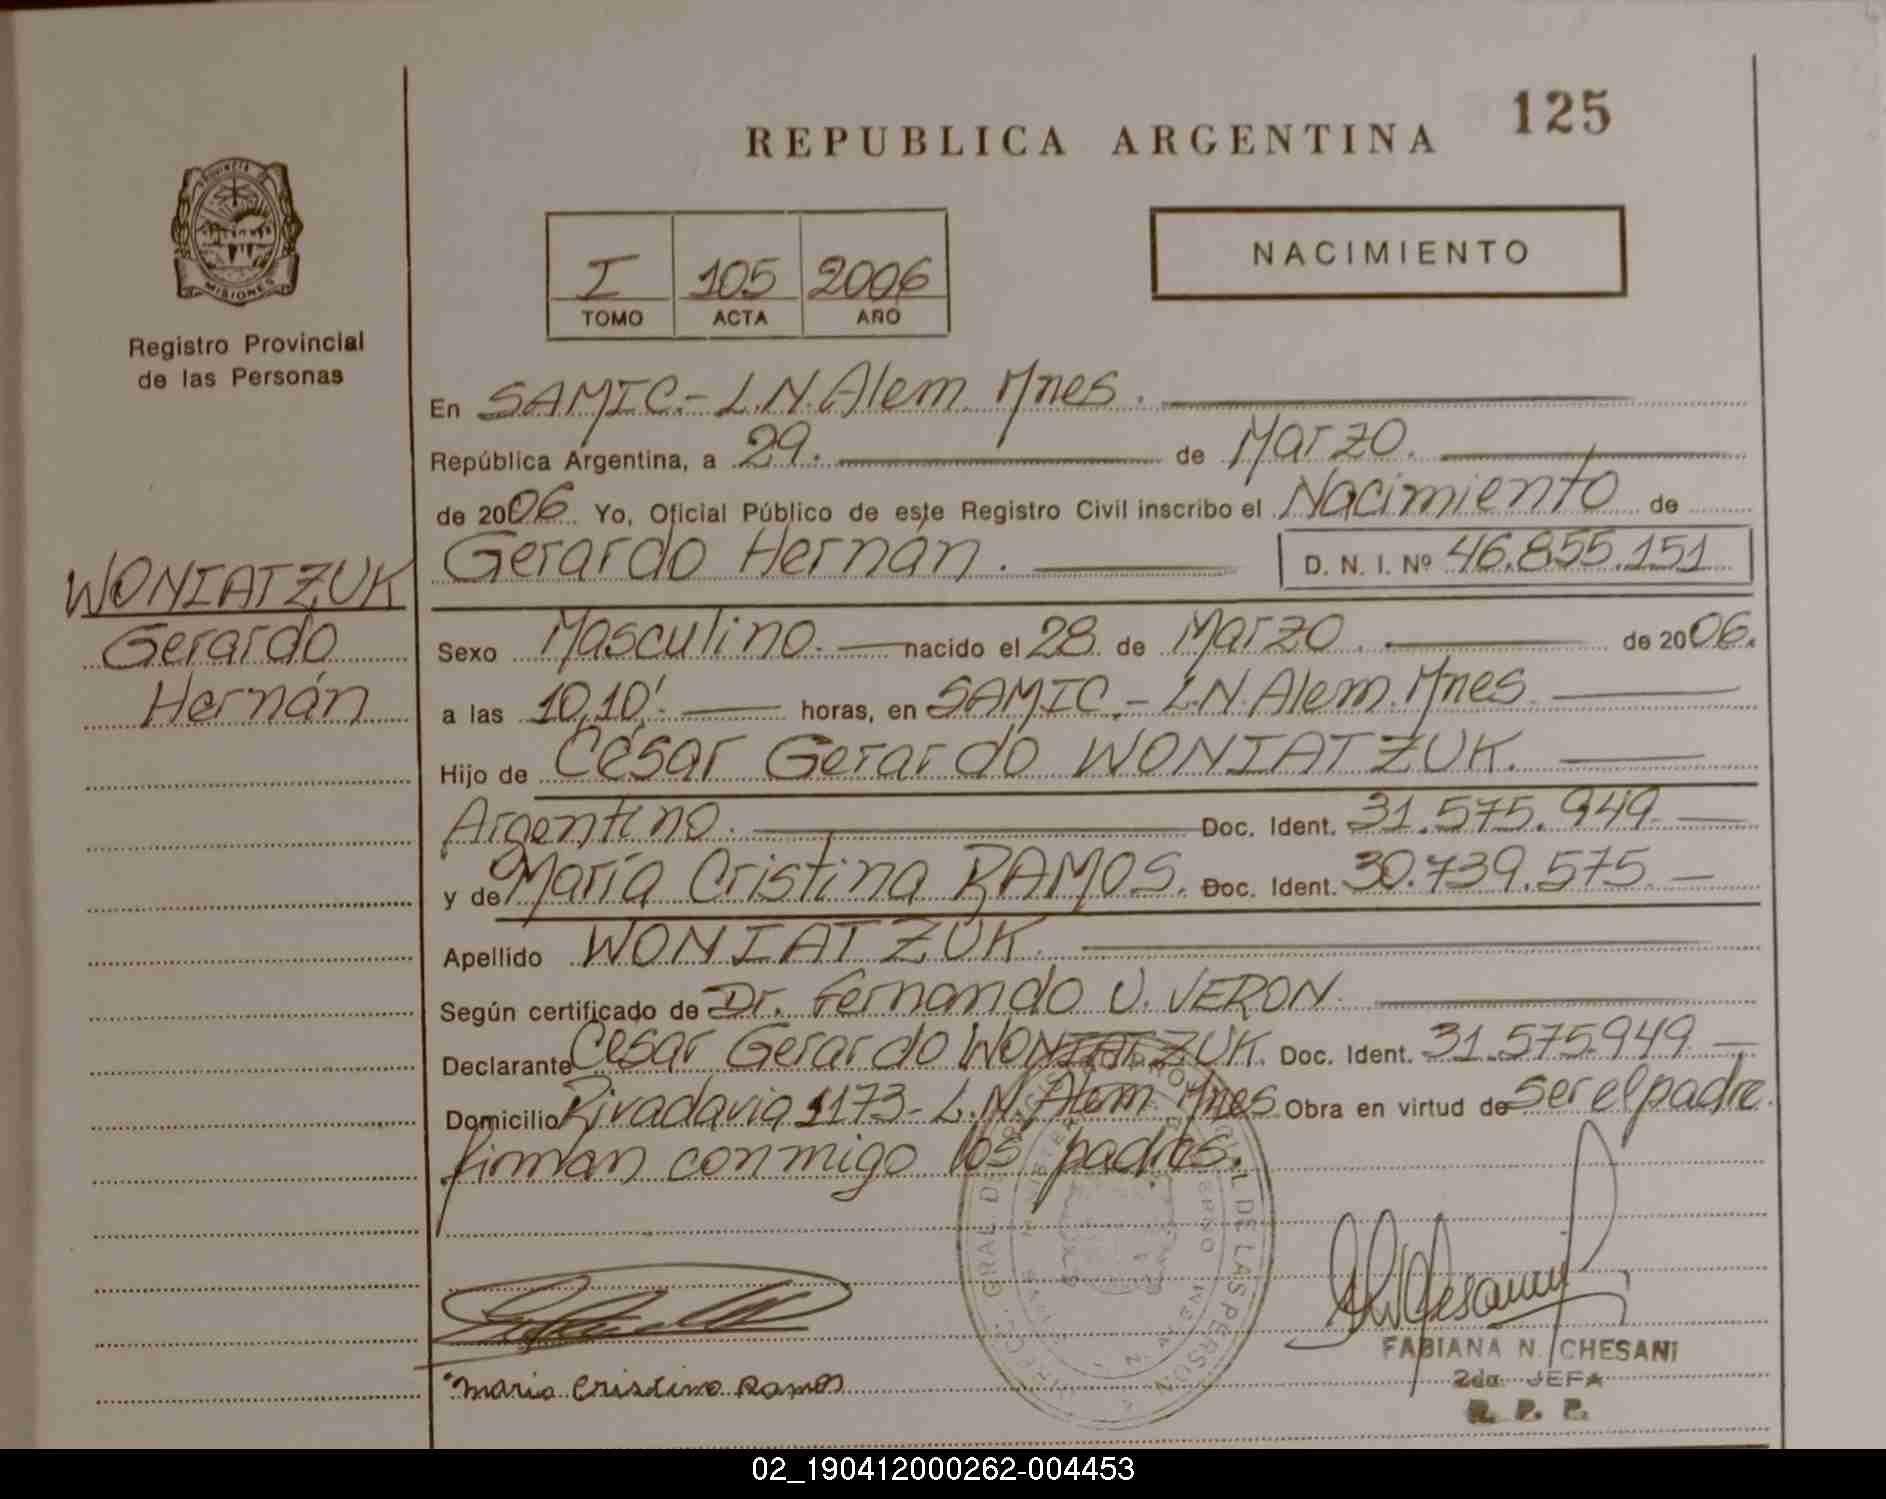 REPUBLICA ARGENTINA
125
PROVINCIA DE
MISIONES
Registro Provincial
de las Personas
I 105 2006
TOMO ACTA AÑO
NACIMIENTO
En SAMIC.- L.N. Alem. Mnes.
República Argentina, a 29. de Marzo.
de 2006. Yo, Oficial Público de este Registro Civil inscribo el Nacimiento de
Gerardo Hernán. D. N. I. Nº 46.855.151
WONIATZUK
Gerardo
Hernán
Sexo Masculino. nacido el 28 de Marzo. de 2006.
a las 10,10'. horas, en SAMIC.- L.N. Alem. Mnes
Hijo de César Gerardo WONIATZUK.
Argentino. Doc. Ident. 31.575.949
y de María Cristina RAMOS. Doc. Ident. 30.739.575
Apellido WONIATZUK.
Según certificado de Dr. Fernando U. VERON.
Declarante César Gerardo WONIATZUK. Doc. Ident. 31.575949
Domicilio Rivadavia 1173- L.N. Alem. Mnes Obra en virtud de ser el padre.
firman conmigo los padres.
GRAL. DE LAS PERSONAS
Maria Cristina Ramos
FABIANA N. CHESANI
2da. JEFA
R. P. P.
02_190412000262-004453